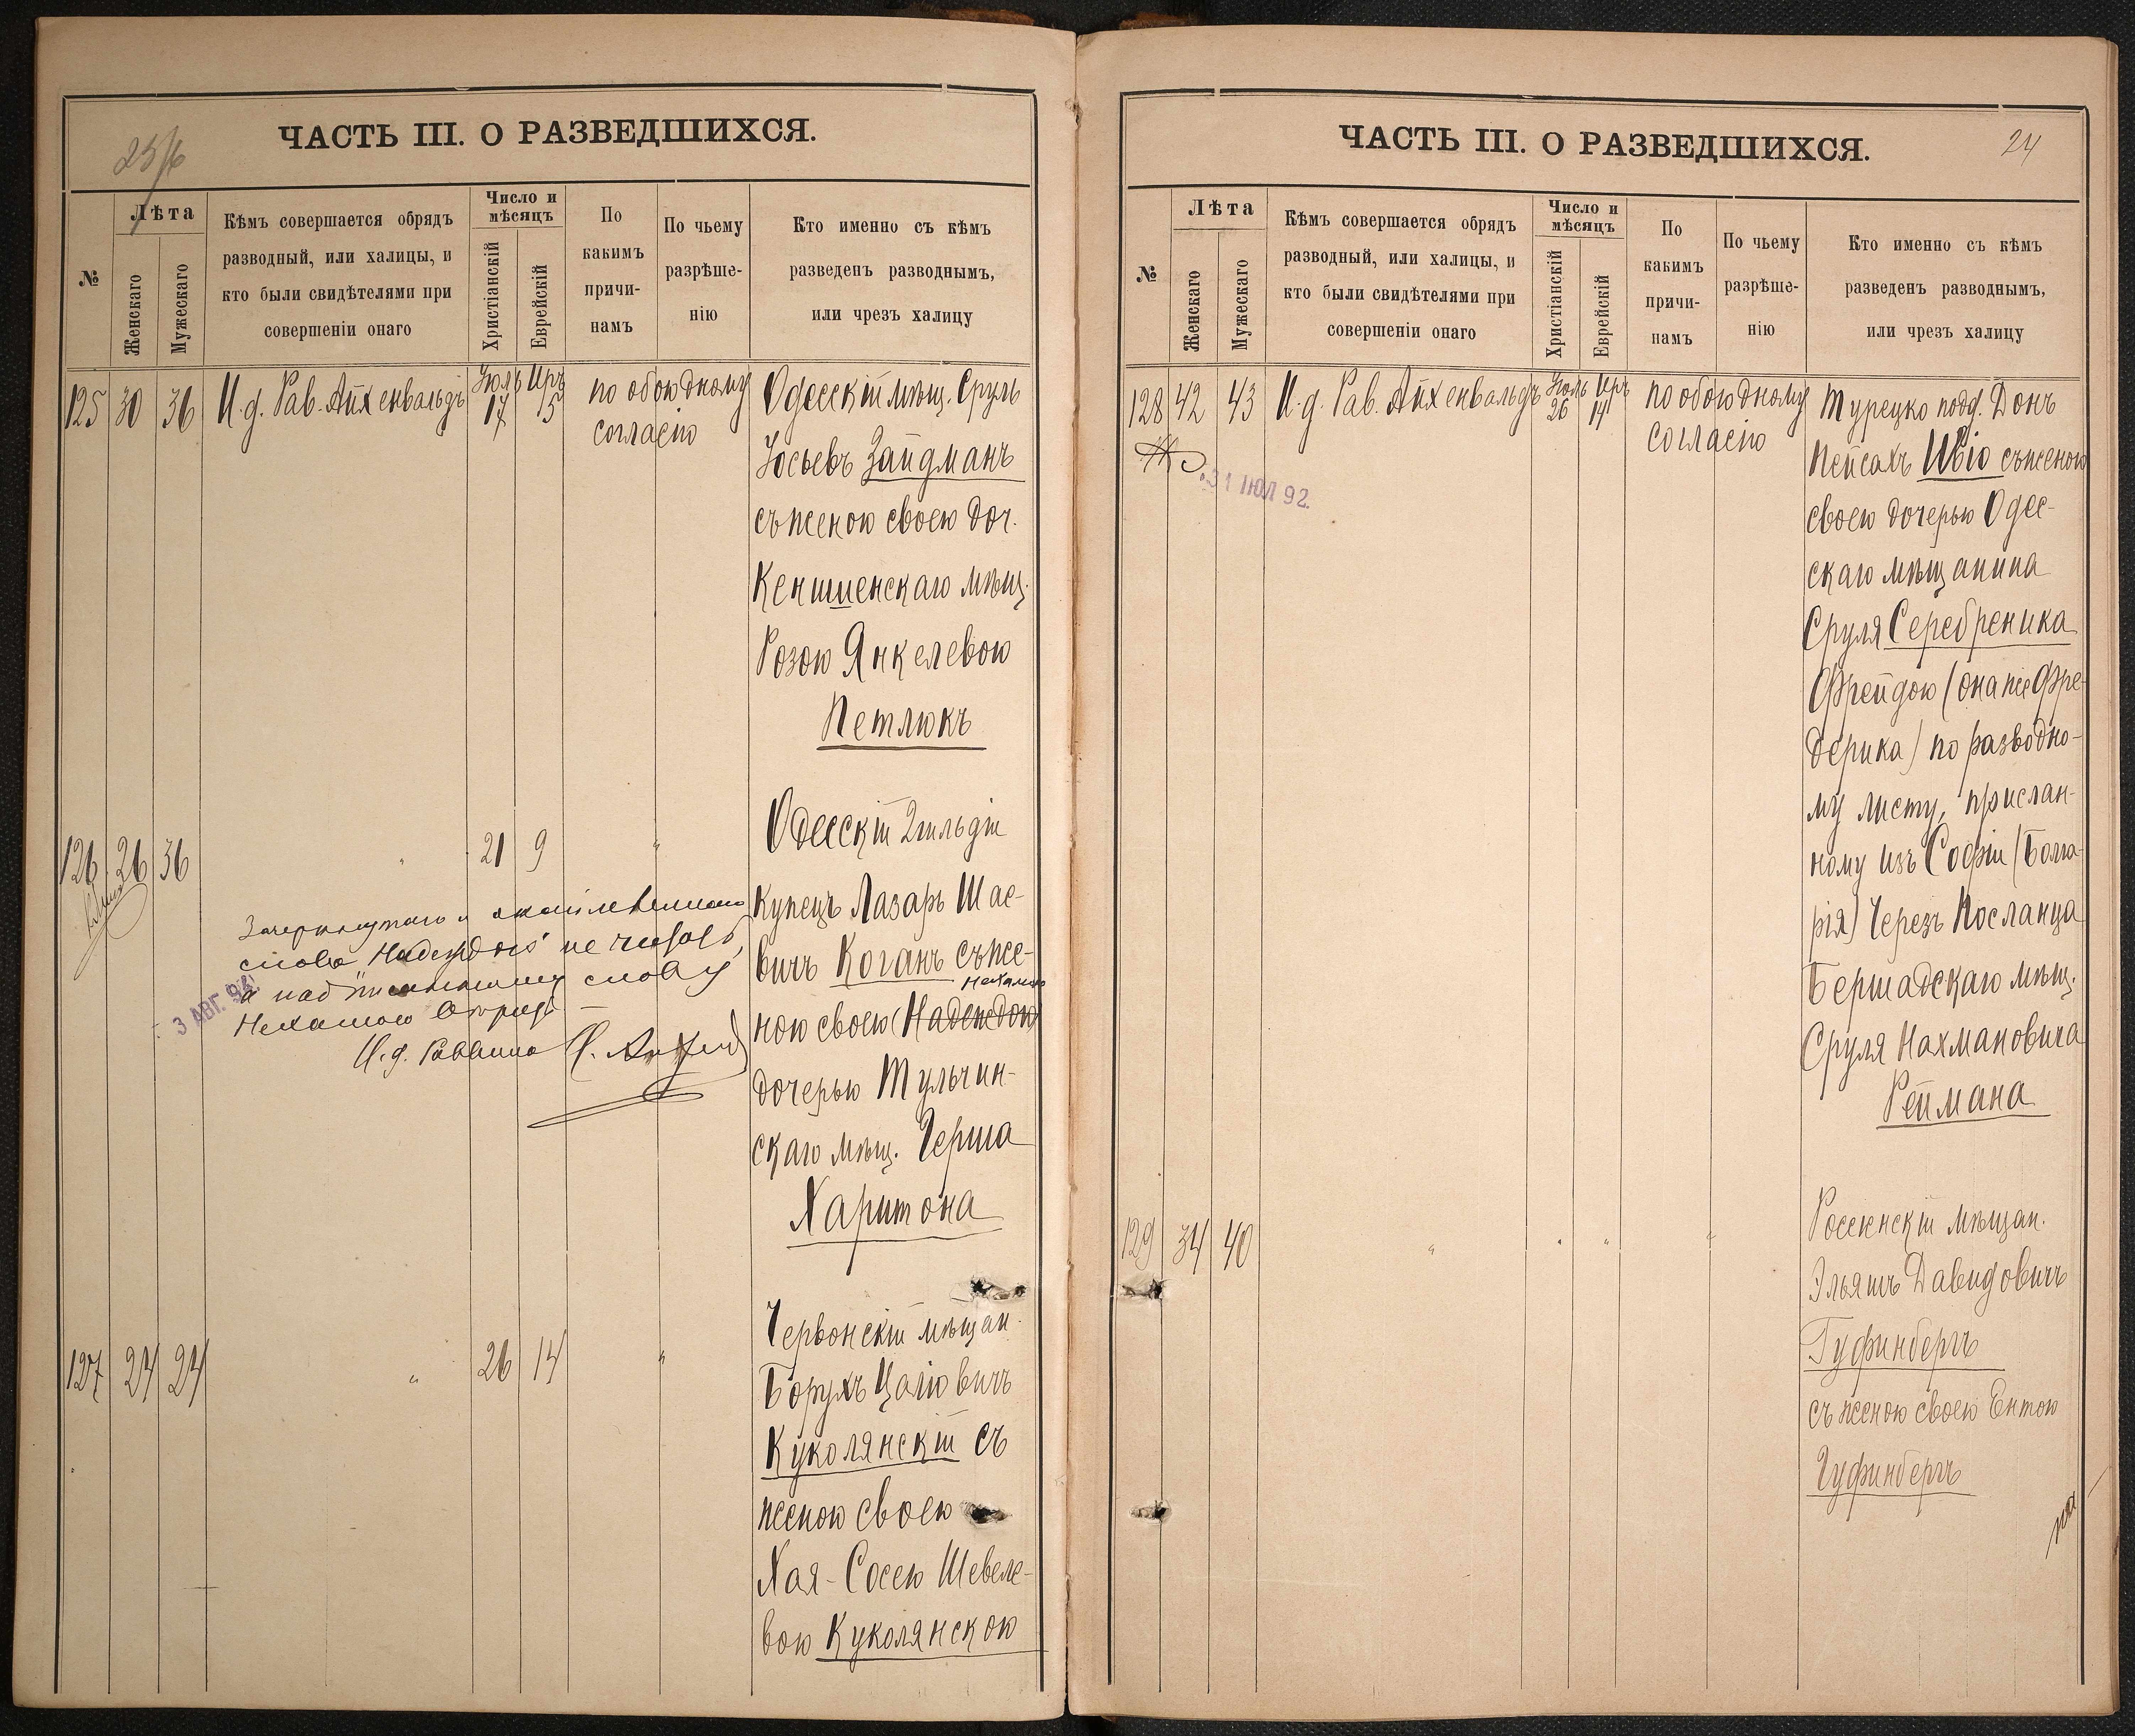 ЧАСТЬ III. О РАЗВЕДШИХСЯ.
№
Лѣта
Женскаго
Мужескаго
Кѣмъ совершается обрядъ
разводный, или халицы, и
кто были свидѣтелями при
совершеніи онаго
Число и
мѣсяцъ
Христіанскій
Еврейскій
По
какимъ
причи-
намъ
По чьему
разрѣше-
нію
Кто именно съ кѣмъ
разведенъ разводнымъ,
или чрезъ халицу
125 30 36 И. д. Рав. Айхенвальдъ
17 5
по обоюдному
согласію
Одесскій мѣщ. Сруль
Іосьевъ Зайдманъ
съ женою своею доч.
Кенишенскаго мѣщ.
Розою Янкелевою
Петлюкъ
126 26 36 " 21 9 "
Одесскій 2 гильдіи
купецъ Лазарь Шае-
вичъ Коганъ съ же-
Нехамою
ною своею (Надеждою)
дочерью Тульчин-
скаго мѣщ. Герша
Харитона
Зачеркнутаго и
слова "Надеждою" не читать,
а надписанному слову
Нехамою вѣрить
И. д. Раввина
3 АВГ. 93
127 24 24 " 26 14 "
Червонскій мѣщан.
Борухъ Цаліовичъ
Куколянскій съ
женою своею
Хая-Сосею Шевеле-
вою Куколянскою
ЧАСТЬ III. О РАЗВЕДШИХСЯ.
24
№
Лѣта
Женскаго
Мужескаго
Кѣмъ совершается обрядъ
разводный, или халицы, и
кто были свидѣтелями при
совершеніи онаго
Число и
мѣсяцъ
Христіанскій
Еврейскій
По
какимъ
причи-
намъ
По чьему
разрѣше-
нію
Кто именно съ кѣмъ
разведенъ разводнымъ,
или чрезъ халицу
128 42 43 И. д. Рав. Айхенвальдъ
26 14
по обоюдному
согласію
31 ІЮЛ 92.
Турецко подд. Донъ
Пейсахъ Ивіо съ женою
своею дочерью Одес-
скаго мѣщанина
Сруля Серебреника
Фрейдою (она же Фре-
дерика) по разводно-
му листу, прислан-
ному изъ Софіи (Болга-
рія) Черезъ Посланца
Бершадскаго мѣщ.
Сруля Нахмановича
Реймана
129 34 40 " " " "
Россіенскій мѣщан.
Эльяшъ Давидовичъ
Гуфинбергъ
съ женою своею Ентою
Гуфинбергъ